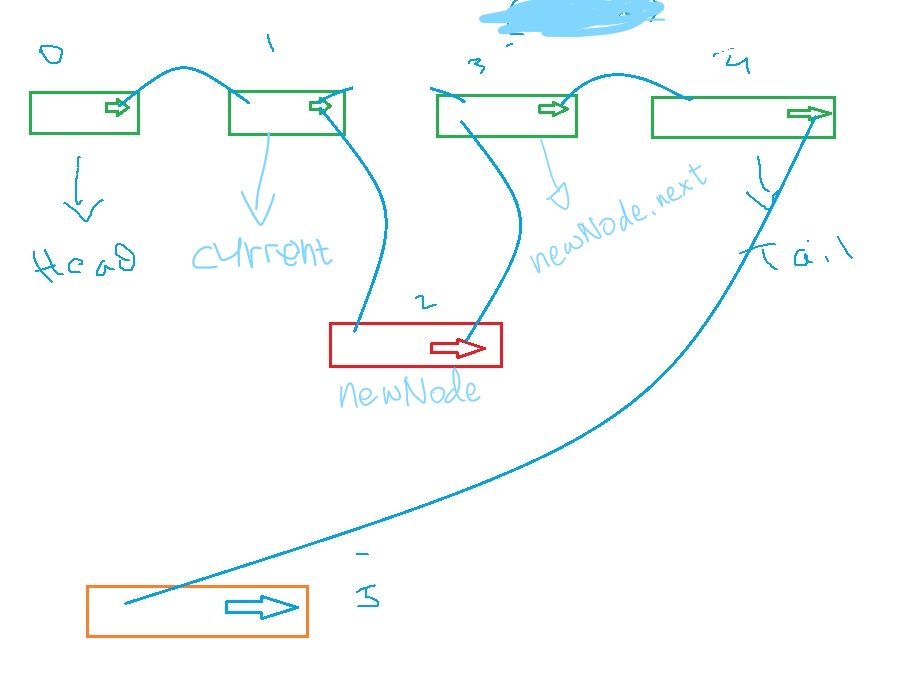 0 1 3 4
Head current newNode.next Tail
2
newNode
5